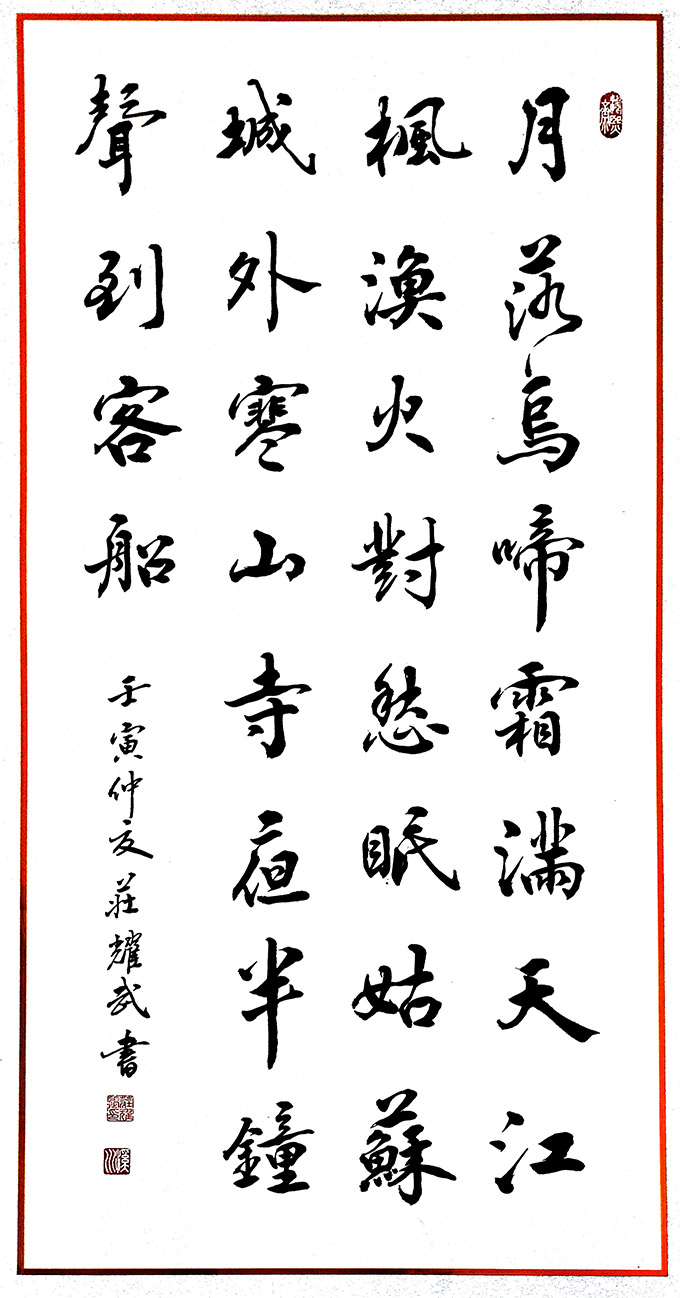 月落烏啼霜滿天江
楓漁火對愁眠姑蘇
城外寒山寺夜半鐘
聲到客船
壬寅仲夏莊耀武書